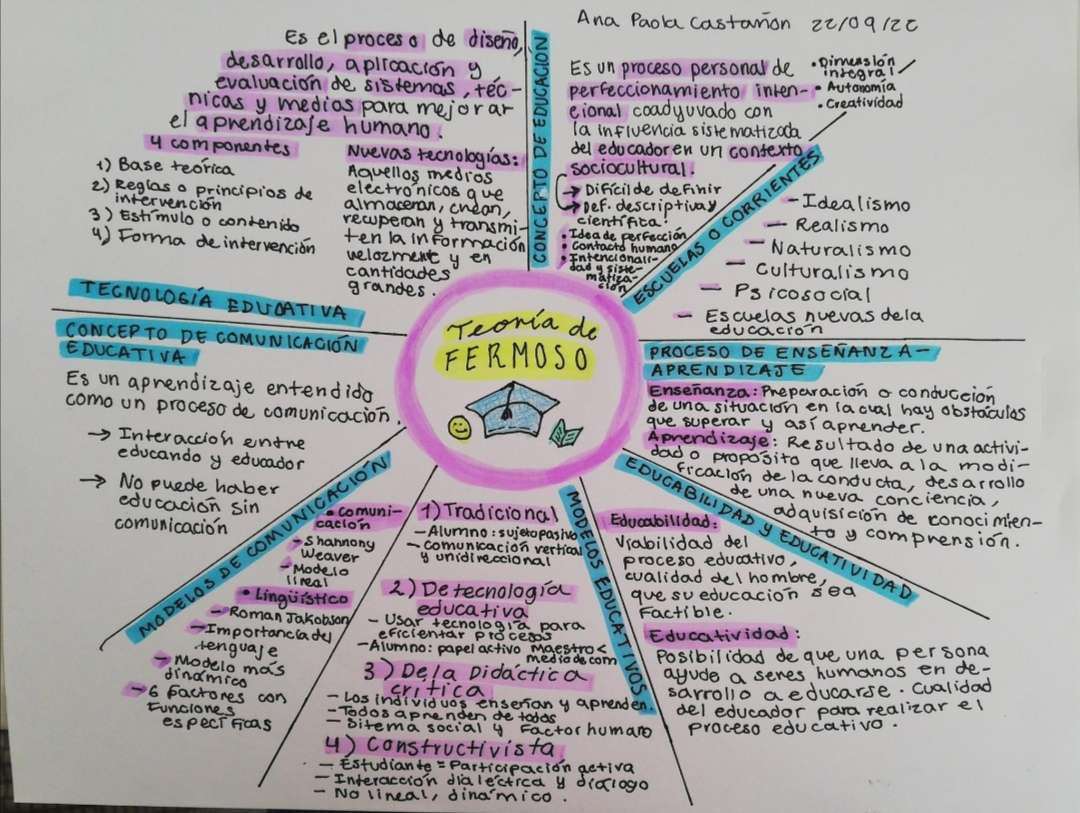 Ana Paola Castañón 22/09/22
Teoría de
FERMOSO
CONCEPTO DE EDUCACIÓN
Es un proceso personal de
perfeccionamiento inten-
cional coadyuvado con
la influencia sistematizada
del educador en un contexto
sociocultural.
→ Difícil de definir
→ Def. descriptiva y
científica!
• Idea de perfección
• Contacto humano
• Intencionali-
dad y siste-
matiza-
ción
• Dimensión
integral
• Autonomía
• Creatividad
ESCUELAS O CORRIENTES
- Idealismo
- Realismo
- Naturalismo
- Culturalismo
- Psicosocial
- Escuelas nuevas de la
educación
PROCESO DE ENSEÑANZA-
APRENDIZAJE
Enseñanza: Preparación o conducción
de una situación en la cual hay obstáculos
que superar y así aprender.
Aprendizaje: Resultado de una activi-
dad o propósito que lleva a la modi-
ficación de la conducta, desarrollo
de una nueva conciencia,
adquisición de conocimien-
to y comprensión.
EDUCABILIDAD Y EDUCATIVIDAD
Educabilidad:
Viabilidad del
proceso educativo,
cualidad del hombre,
que su educación sea
factible.
Educatividad:
Posibilidad de que una persona
ayude a seres humanos en de-
sarrollo a educarse. Cualidad
del educador para realizar el
proceso educativo.
MODELOS EDUCATIVOS
1) Tradicional
- Alumno: sujeto pasivo
- Comunicación vertical
y unidireccional
2) De tecnología
educativa
- Usar tecnología para
eficientar procesos
- Alumno: papel activo Maestro <
medio de com
3) De la Didáctica
crítica
- Los individuos enseñan y aprenden.
- Todos aprenden de todos
- Sitema social y Factor humano
4) Constructivista
- Estudiante = Participación activa
- Interacción dialéctica y diálogo
- No lineal, dinámico.
MODELOS DE COMUNICACIÓN
• Comuni-
cación
- Shannon y
Weaver
- Modelo
lineal
• Lingüístico
- Roman Jakobson
- Importancia del
lenguaje
- Modelo más
dinámico
- 6 factores con
funciones
específicas
CONCEPTO DE COMUNICACIÓN
EDUCATIVA
Es un aprendizaje entendido
como un proceso de comunicación.
→ Interacción entre
educando y educador
→ No puede haber
educación sin
comunicación
TECNOLOGÍA EDUCATIVA
Es el proceso de diseño,
desarrollo, aplicación y
evaluación de sistemas, téc-
nicas y medios para mejorar
el aprendizaje humano.
4 componentes
1) Base teórica
2) Reglas o principios de
intervención
3) Estímulo o contenido
4) Forma de intervención
Nuevas tecnologías:
Aquellos medios
electrónicos que
almacenan, crean,
recuperan y transmi-
ten la información
velozmente y en
cantidades
grandes.